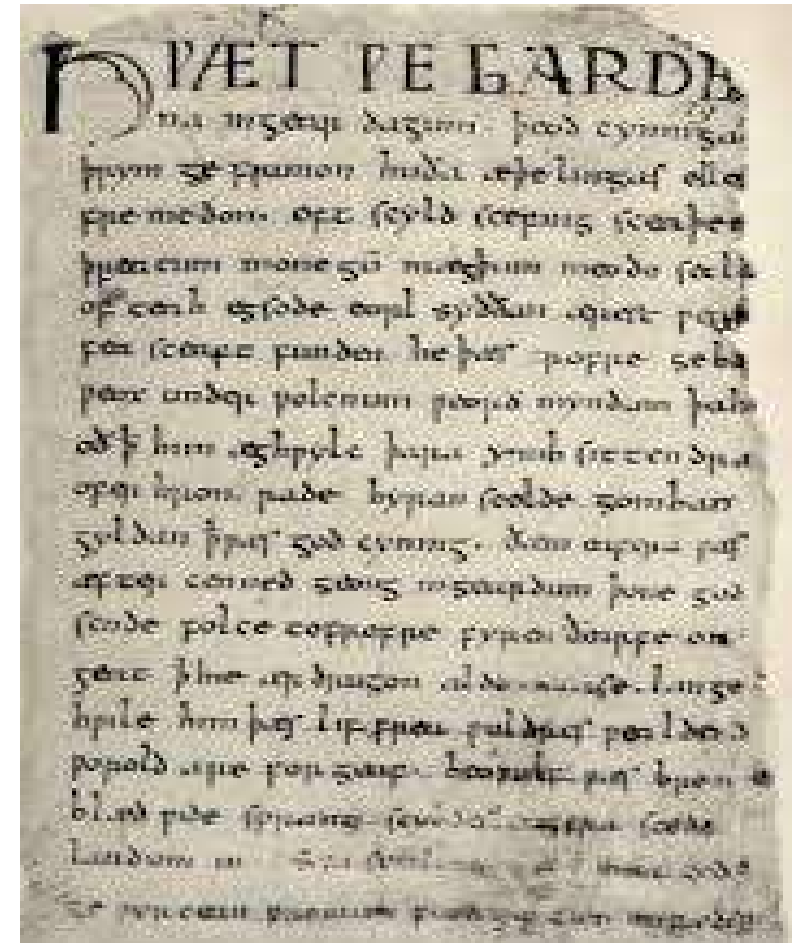 HǷÆT ǷE GARDE
na in geardagum. þeod cyninga
þrym ge frunon huða æþelingas elle
fremedon. oft scyld scefing sceaþe
þreatum monegū mægþum meodo setla
of teah egsode eorl syððan ærest ƿear
fea sceaft funden he þæs frofre geba
ƿeox under ƿolcnum ƿeorð myndum þah
oð þ̵ him æghƿylc þara ymb sittendra
ofer hron rade hyran scolde gomban
gyldan þ̵ ƿæs god cyning. ðæm eafera ƿæs
æfter cenned geong in geardum þone god
sende folce tofrofre fyren ðearfe on
geat þ̵ hie ær drugon aldor ase. lange
hƿile him þæs lif frea ƿuldres ƿealdend
ƿorold are for geaf. beoƿulf ƿæs breme
blæd ƿide sprang scyldes eafera scede
landum in